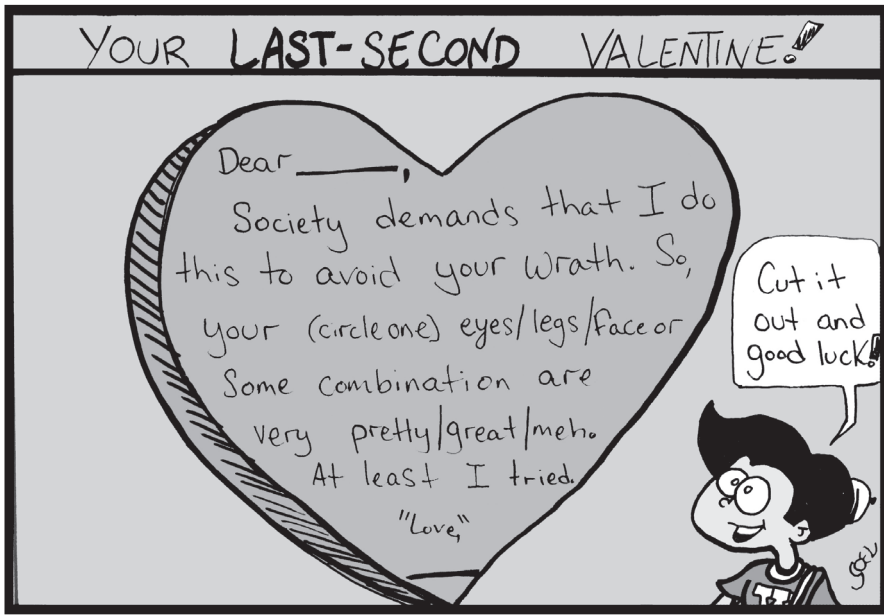 YOUR LAST-SECOND VALENTINE!
Dear ______,
Society demands that I do
this to avoid your wrath. So,
your (circle one) eyes/legs/face or
some combination are
very pretty/great/meh.
At least I tried.
"Love,"
Cut it
out and
good luck!